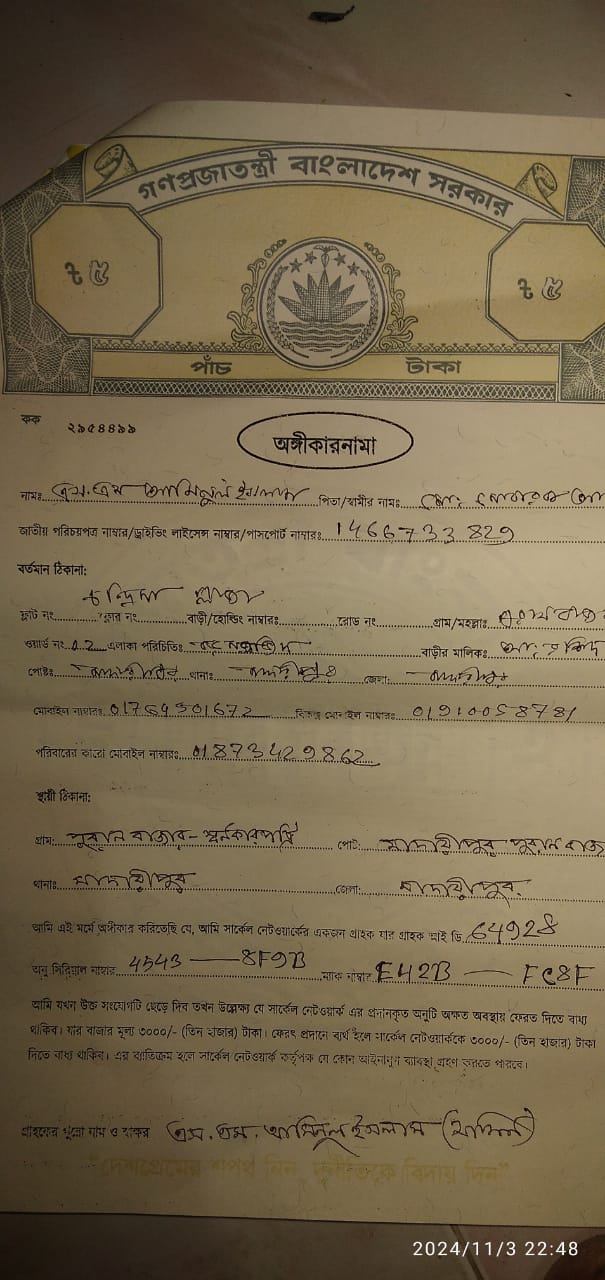 গণপ্রজাতন্ত্রী বাংলাদেশ সরকার
৳ ৫ ৳ ৫
পাঁচ টাকা
কক ২৯৫৪৪৯৯
অঙ্গীকারনামা
নামঃ এস. এম আমিনুল ইসলাম পিতা/স্বামীর নামঃ মোঃ
জাতীয় পরিচয়পত্র নাম্বার/ড্রাইভিং লাইসেন্স নাম্বার/পাসপোর্ট নাম্বারঃ 1466733829
বর্তমান ঠিকানা:
ফ্লাট নং ফ্লোর নং বাড়ী/হোল্ডিং নাম্বারঃ রোড নং গ্রাম/মহল্লাঃ
ওয়ার্ড নং 02 এলাকা পরিচিতিঃ বাড়ীর মালিকঃ
পোষ্টঃ থানাঃ জেলা:
মোবাইল নাম্বারঃ 01769301672 বিকল্প মোবাইল নাম্বারঃ 01910058781
পরিবারের কারো মোবাইল নাম্বারঃ 01873429862
স্থায়ী ঠিকানা:
গ্রাম: পুরান বাজার - স্বর্নকারপট্টি পোট: মাদারীপুর পুরান
থানাঃ মাদারীপুর জেলা: মাদারীপুর
আমি এই মর্মে অঙ্গীকার করিতেছি যে, আমি সার্কেল নেটওয়ার্কের একজন গ্রাহক যার গ্রাহক আই ডি 64928
অনু সিরিয়াল নাম্বার 4543 — 8F9B ম্যাক নাম্বার E42B — FC8F
আমি যখন উক্ত সংযোগটি ছেড়ে দিব তখন উল্লেক্ষ্য যে সার্কেল নেটওয়ার্ক এর প্রদানকৃত অনুটি অক্ষত অবস্থায় ফেরত দিতে বাধ্য
থাকিব। যার বাজার মূল্য ৩০০০/- (তিন হাজার) টাকা। ফেরৎ প্রদানে ব্যর্থ হলে সার্কেল নেটওয়ার্ককে ৩০০০/- (তিন হাজার) টাকা
দিতে বাধ্য থাকিব। এর ব্যতিক্রম হলে সার্কেল নেটওয়ার্ক কর্তৃপক্ষ যে কোন আইনানুগ ব্যবস্থা গ্রহণ করতে পারবে।
গ্রাহকের পুরো নাম ও স্বাক্ষর এস. এম. আমিনুল ইসলাম (আমিন)
"দেশপ্রেমের শপথ নিন, দুর্নীতিকে বিদায় দিন"
2024/11/3 22:48